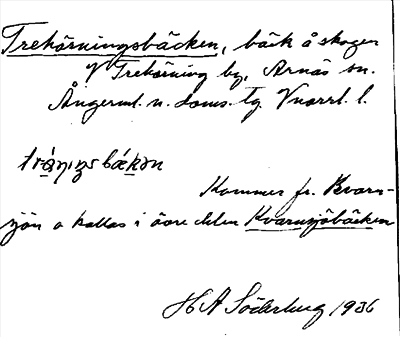 Trehörningsbäcken, bäck å skogen
V Trehörning by, Arnäs sn.
Ångerml. n. doms. tg Vnorrl. l.
Kommer fr. Kvarn-
sjön o kallas i övre delen Kvarnsjöbäcken
H A Söderberg 1936